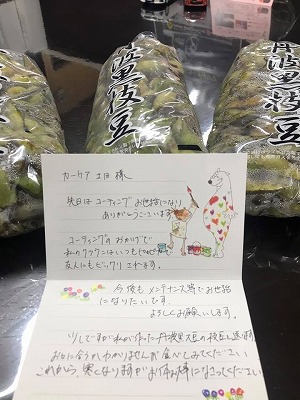 丹波黒枝豆
丹波黒枝豆
カーケア 土田 様
先日は コーティング お世話になり
ありがとうございます
コーティングの おかげで
私の は いつも
友人にも ビックリ されます
今後も メンテナンス等で お世話
になりたいです。
よろしくお願いします。
少しですが 私が 作った 丹波黒大豆の 枝豆を 送ります
お口に合うか わかりませんが 食べてみてください
これから 寒くなりますが お体お大事になさってください